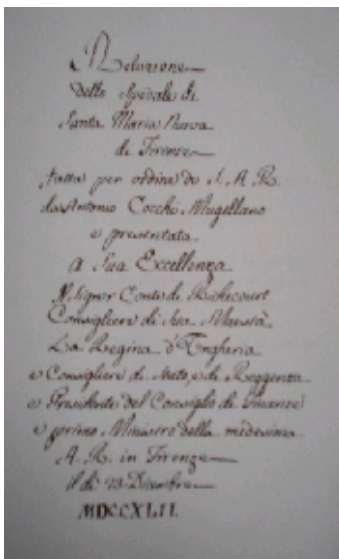 Relazione
dello Spedale di
Santa Maria Nuova
di Firenze
fatta per ordine di S. A. R.
da Antonio Cocchi Mugellano
e presentata
A Sua Eccellenza
Il Signor Conte di Richecourt
Consigliere di Sua Maestà
La Regina d'Ungheria
e Consigliere di Stato, e di Reggenza
e Presidente del Consiglio di Finanze
e primo Ministro della medesima
A. R. in Firenze
il dì 23 Dicembre
MDCCXLII